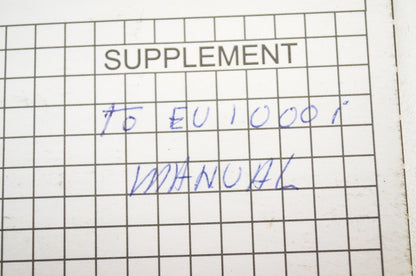 SUPPLEMENT
To EU1000i
MANUAL